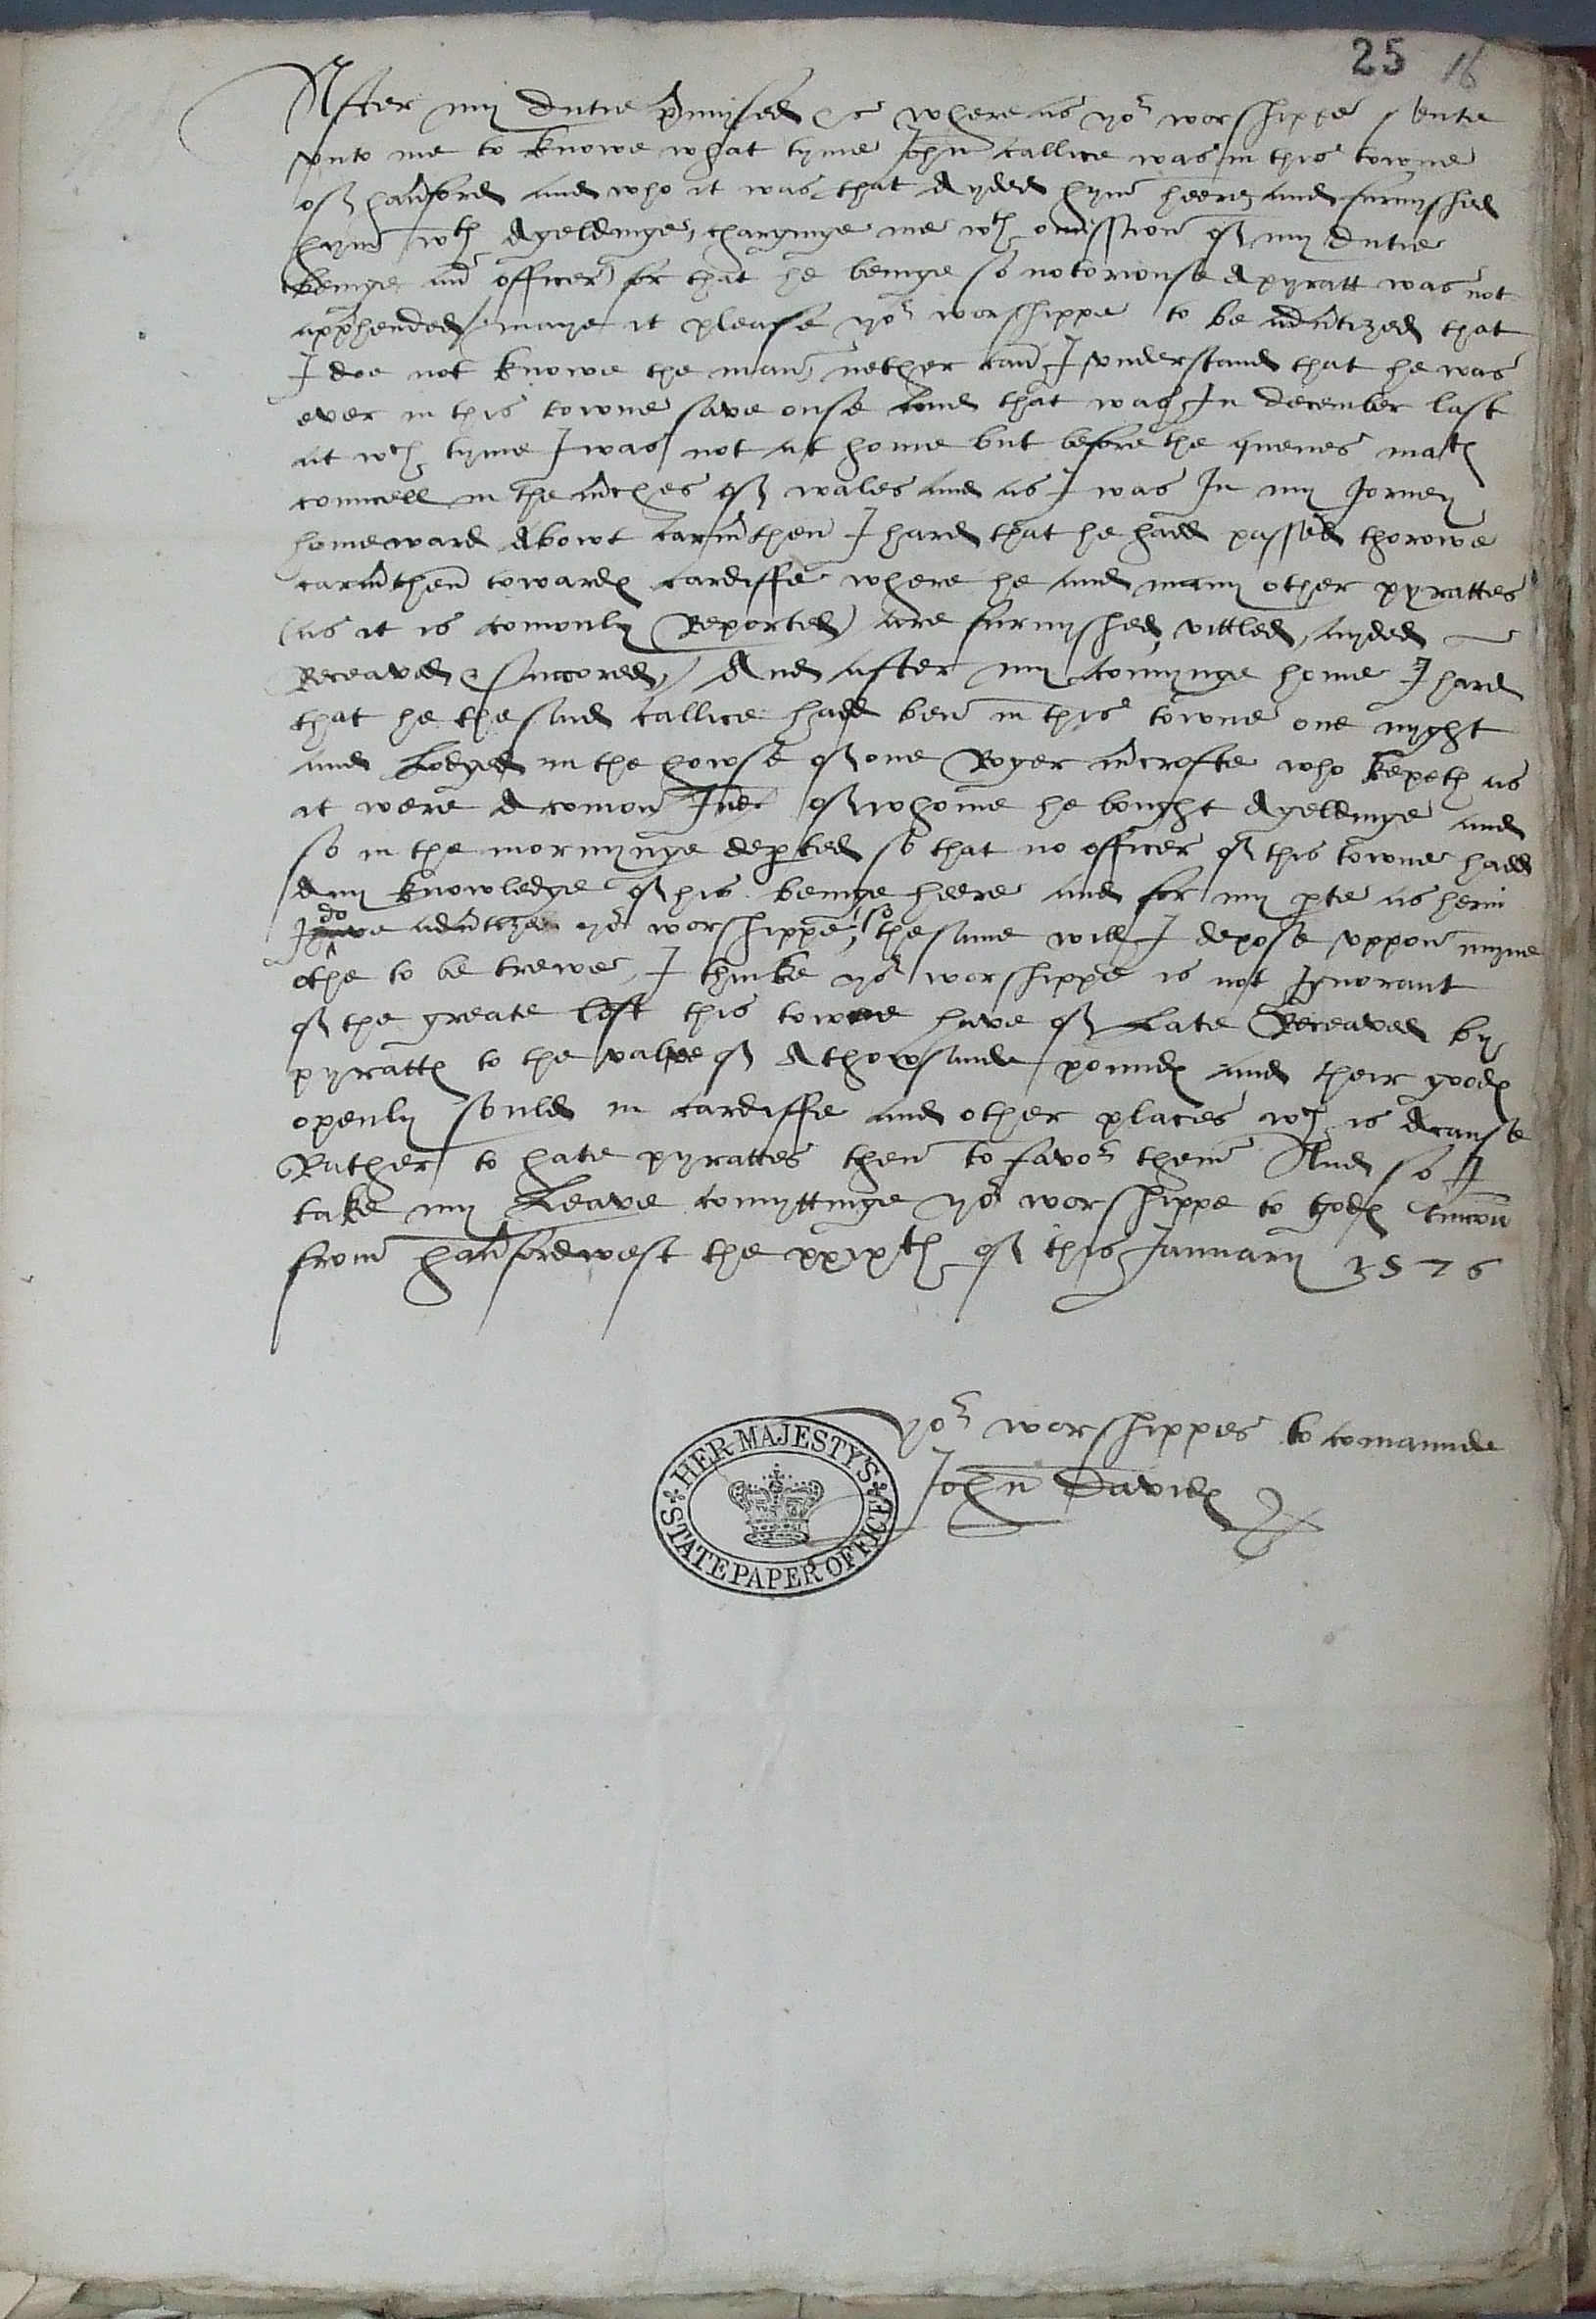 25 16
After my dutie p̄mysed &c where as yor worshippe sente
vnto me to knowe what tyme John Callice was in this towne
of haūford and who it was that ayded hym heere and furnyshed
hym wth a geldinge, charginge me wth omission of my dutie
beinge an officer for that he beinge so notoriouse a pyratt was not
apphended / maye it please yor worshippe to be adūtized that
I doe not knowe the man, nether can I vnderstand that he was
ever in this towne save onse and that was In december last
at wch tyme I was not at home but before the quenes matꝭ
councell in the m̄ches of wales and as I was In my Jorney
homeward abowt carm̄then I hard that he hadd passed thorowe
carm̄then towardꝭ cardiffe where he and many other pyrattes
(as it is comonly Reported) are furnyshed, vittled, ayded
Receaved & succored, And after my comynge home I hard
that he the said callice hadd ben in this towne one nyght
and Lodged in the howse of one Roger m̄crofte who kepeth as
it were a comon Inne of whome he bought a geldinge and
so in the mornynge depted so that no officer of this towne hadd
any knowledge of his beinge heere and for my pte as herin
I do adūtize yor worshippe, so the same will I depose vppon myne
othe to be trewe, I thinke yor worshippe is not Ignorant
of the greate lost this towne have of Late Receaved by
pyrattꝭ to the value of a thowsande poundꝭ and their goodꝭ
openly sould in cardiffe and other places wch is a cause
Rather to hate pyrattes then to favor them And so I
take my Leave comyttinge yor worshippe to godꝭ tuicōn
from haūfordwest the xxixth of this January 1576
yor worshippes to comaunde
John Davidꝭ
HER MAJESTY'S
STATE PAPER OFFICE